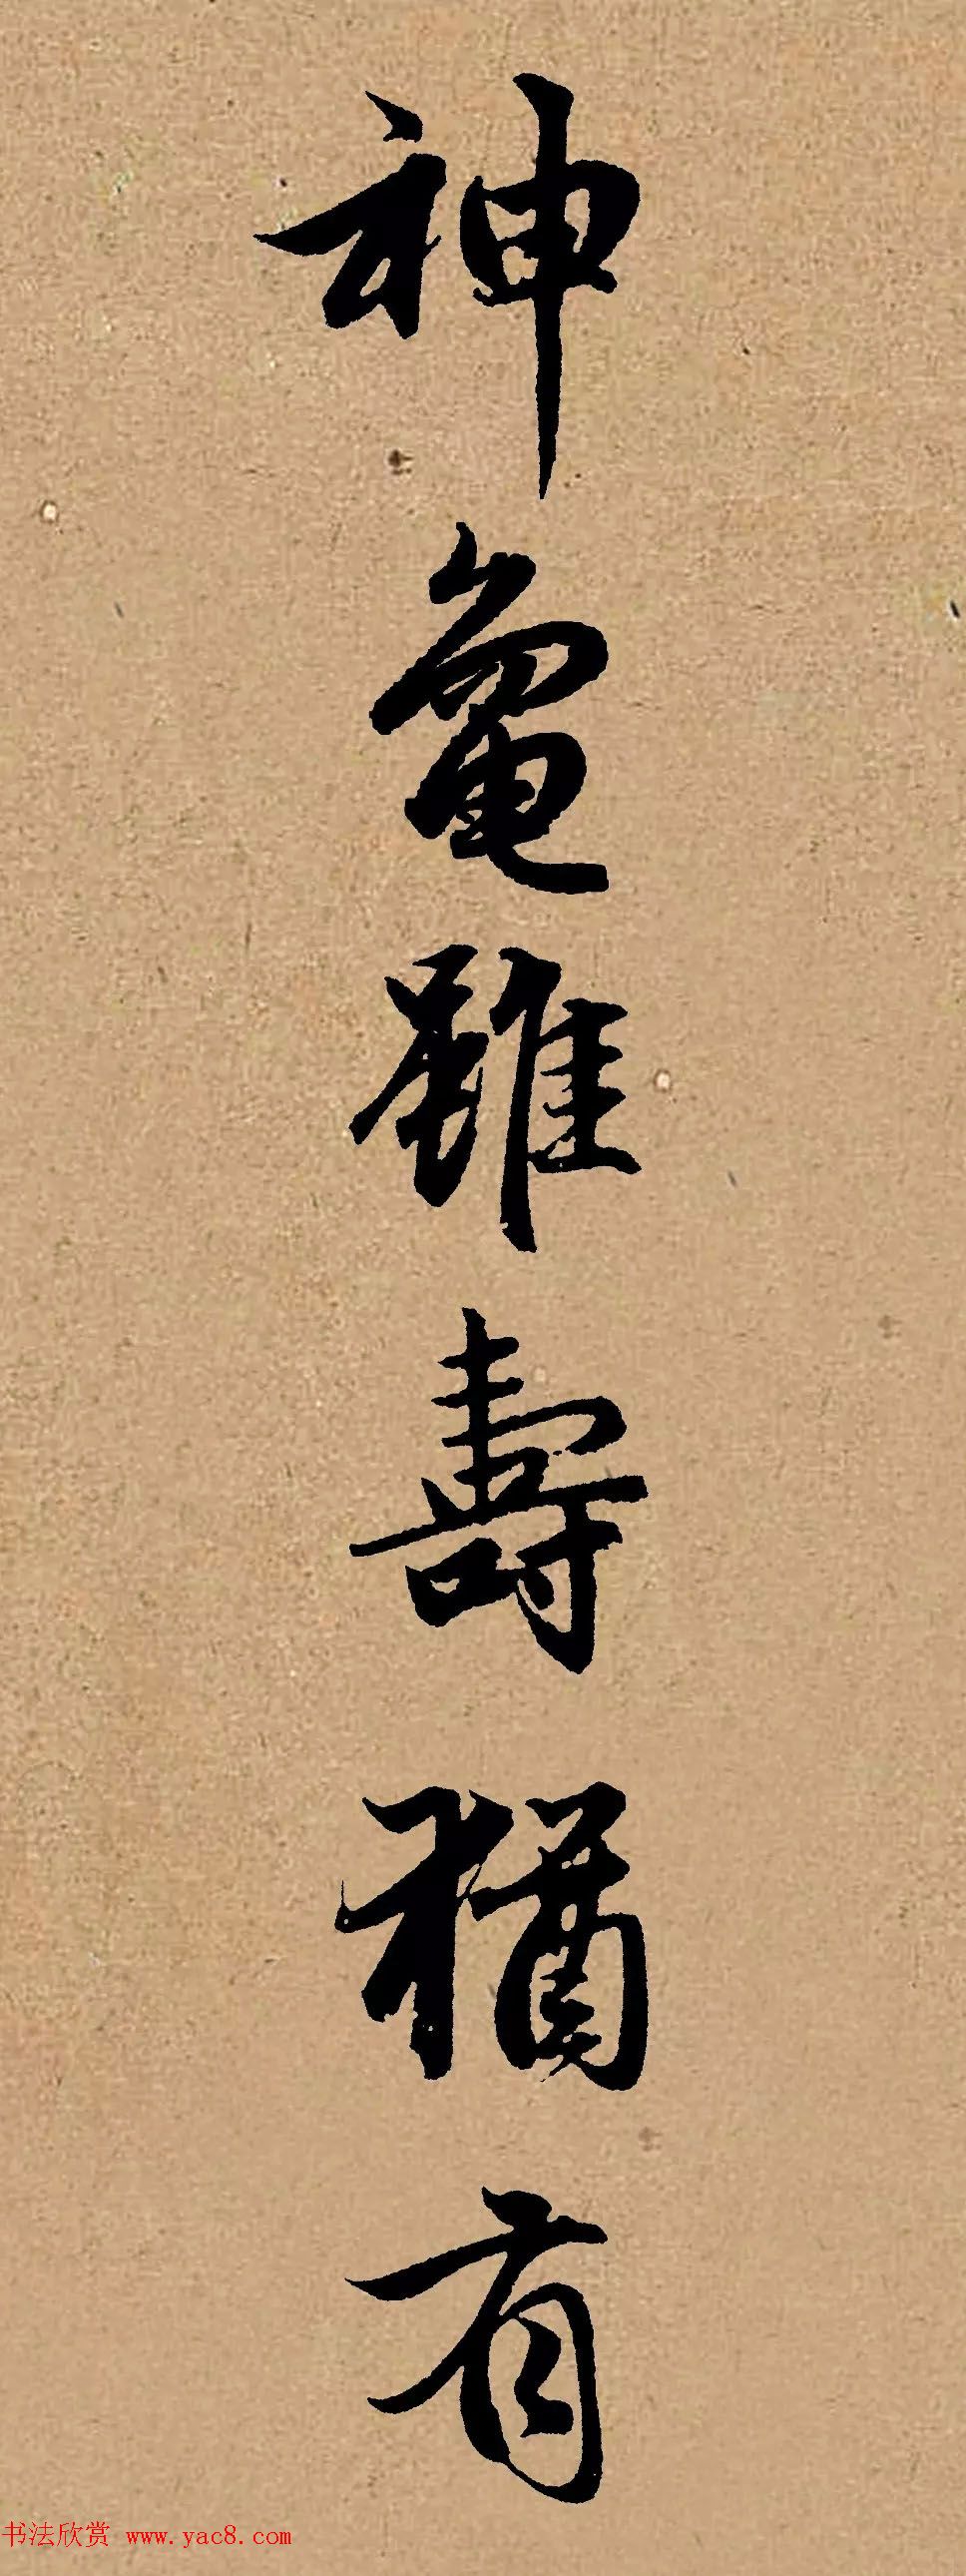 神龜雖壽猶有
书法欣赏 www.yac8.com